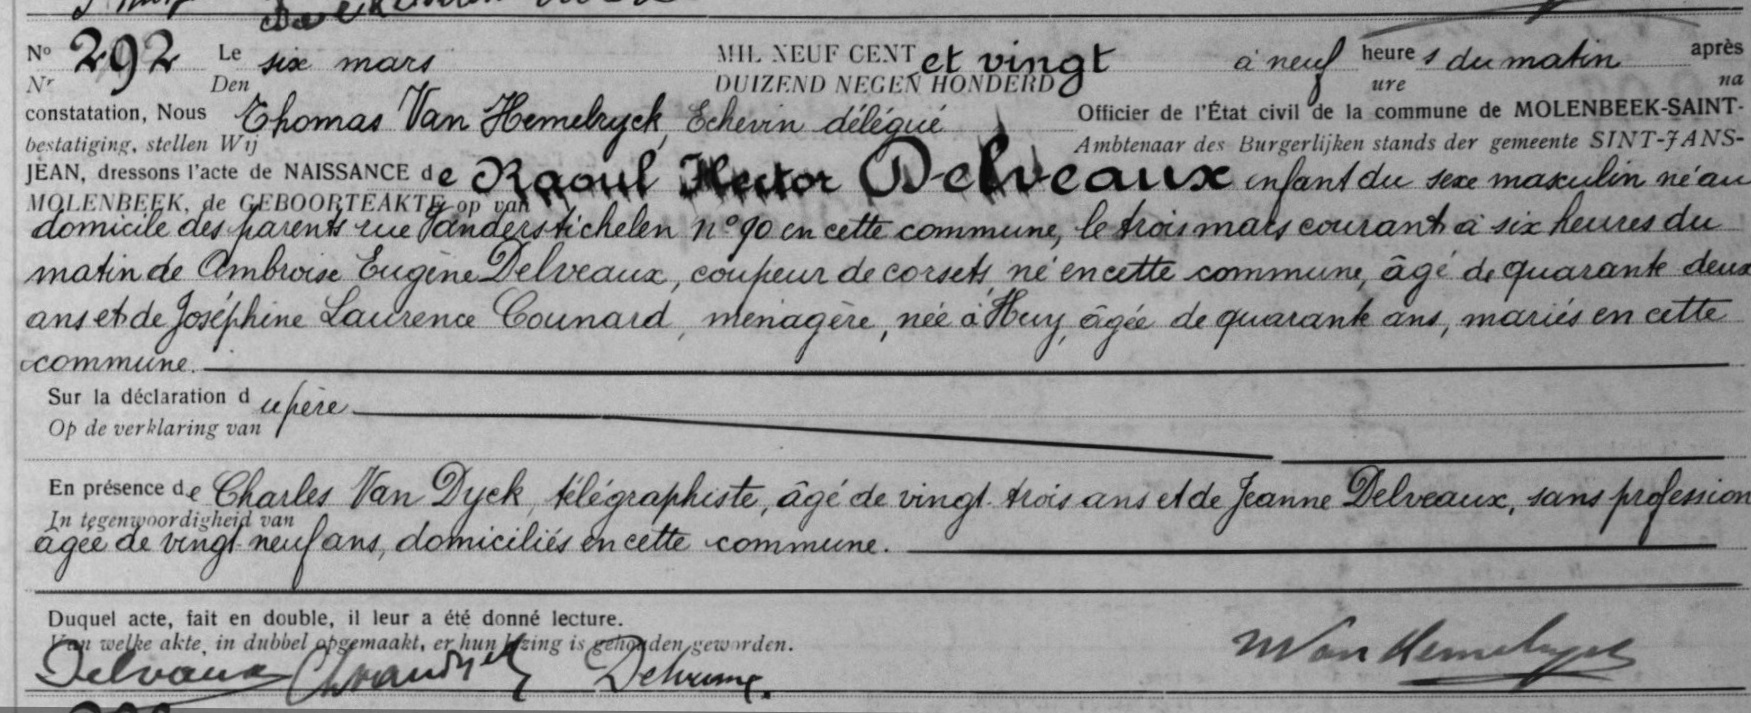 Nº 292 Le six mars MIL NEUF CENT et vingt à neuf heures du matin après
Nr Den DUIZEND NEGEN HONDERD ure na
constatation, Nous Thomas Van Hemelryck, Echevin délégué Officier de l'État civil de la commune de MOLENBEEK-SAINT-
bestatiging, stellen Wij Ambtenaar des Burgerlijken stands der gemeente SINT-JANS-
JEAN, dressons l'acte de NAISSANCE de Raoul Hector Delveaux enfant du sexe masculin né au
MOLENBEEK, de GEBOORTEAKTE op van
domicile des parents rue Vanderstichelen nº 90 en cette commune, le trois mars courant à six heures du
matin de Ambroise Eugène Delveaux, coupeur de corsets, né en cette commune, âgé de quarante deux
ans et de Joséphine Laurence Counard, ménagère, née à Huy, âgée de quarante ans, mariés en cette
commune.
Sur la déclaration du père
Op de verklaring van
En présence de Charles Van Dyck, télégraphiste, âgé de vingt trois ans et de Jeanne Delveaux, sans profession
In tegenwoordigheid van
âgée de vingt neuf ans, domiciliés en cette commune.
Duquel acte, fait en double, il leur a été donné lecture.
Van welke akte, in dubbel opgemaakt, er hun lezing is gehouden geworden.
Delvaux